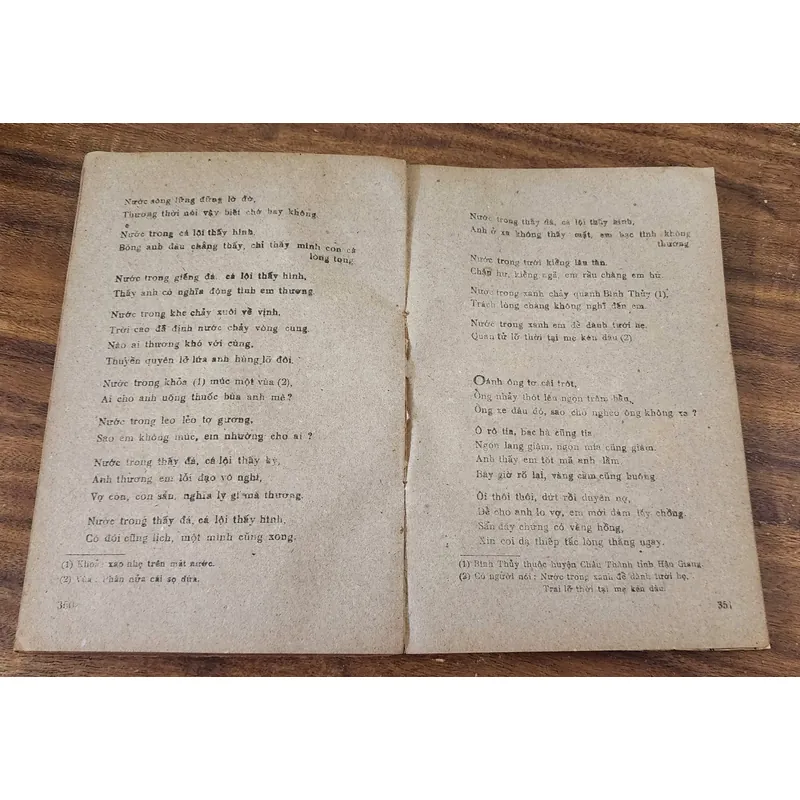 Nước sông lững đững lờ đờ,
Thương thời nói vậy biết chờ hay không.
Nước trong cá lội thấy hình.
Bóng anh đâu chẳng thấy, chỉ thấy mình con cá
lòng tong.
Nước trong giếng đá, cá lội thấy hình,
Thấy anh có nghĩa động tình em thương.
Nước trong khe chảy xuôi về vịnh,
Trời cao đã định nước chảy vòng cung.
Nào ai thương khó với cùng,
Thuyền quyên lỡ lứa anh hùng lỡ đôi.
Nước trong khỏa (1) múc một vùa (2),
Ai cho anh uống thuốc bùa anh mê?
Nước trong leo lẻo tợ gương,
Sao em không múc, em nhường cho ai?
Nước trong thấy đá, cá lội thấy kỳ,
Anh thương em lỗi đạo vô nghì,
Vợ con, con sẵn, nghĩa lý gì mà thương.
Nước trong thấy đá, cá lội thấy hình,
Có đôi cũng lịch, một mình cũng xong.
(1) Khoả: xao nhẹ trên mặt nước.
(2) Vùa: Phân nửa cái sọ dừa.
350
Nước trong thấy đá, cá lội thấy hình,
Anh ở xa không thấy mặt, em bạc tình không
thương
Nước trong tưới kiểng lâu tàn.
Chậu hư, kiểng ngã, em rầu chàng em hư.
Nước trong xanh chảy quanh Bình Thủy (1),
Trách lòng chàng không nghĩ đến em.
Nước trong xanh em để dành tưới hẹ,
Quân tử lỡ thời tại mẹ kén dâu (2)
Oánh ông tơ cái trót,
Ông nhảy thót lên ngọn trâm bầu,
Ông xe đâu đó, sao chỗ nghèo ông không xe?
Ô rô tía, bạc hà cũng tía
Ngọn lang giâm, ngọn mía cũng giâm.
Anh thấy em tốt mã anh lầm,
Bây giờ rõ lại, vàng cầm cũng buông
Ôi thôi thôi, dứt rồi duyên nợ,
Để cho anh lo vợ, em mới dám lấy chồng.
Sẵn đây chứng có vàng hồng,
Xin coi dạ thiếp tấc lòng thẳng ngay.
(1) Bình Thủy thuộc huyện Châu Thành tỉnh Hậu Giang
(2) Có người nói: Nước trong xanh để dành tưới hẹ,
Trai lỡ thời tại mẹ kén dâu
351